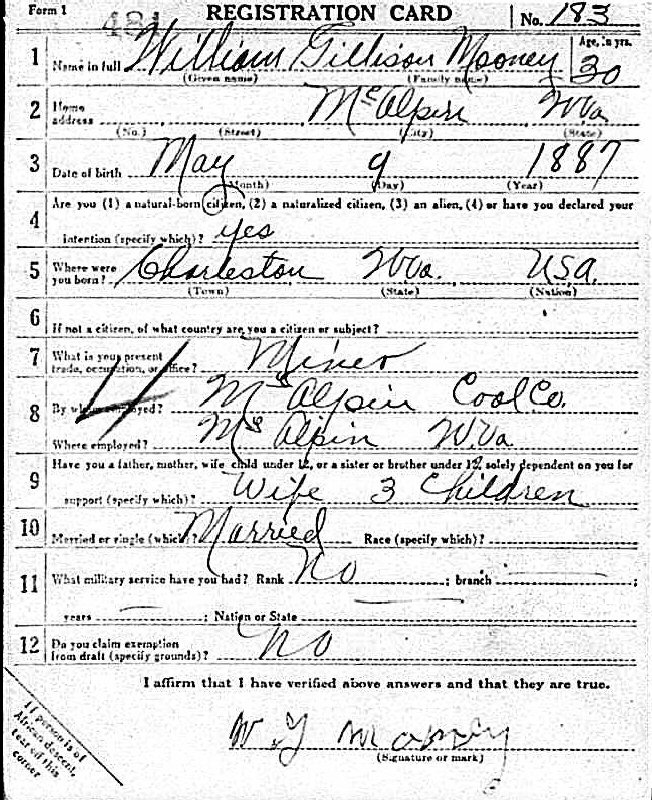 Form 1 REGISTRATION CARD No. 183
481
1 Name in full William Gillison Mooney Age, in yrs. 30
(Given name) (Family name)
2 Home address McAlpin WVa
(No.) (Street) (City) (State)
3 Date of birth May 9 1887
(Month) (Day) (Year)
4 Are you (1) a natural-born citizen, (2) a naturalized citizen, (3) an alien, (4) or have you declared your
intention (specify which)? yes
5 Where were you born? Charleston WVa. USA.
(Town) (State) (Nation)
6 If not a citizen, of what country are you a citizen or subject?
7 What is your present trade, occupation, or office? Miner
4
8 By whom employed? McAlpin Coal Co.
Where employed? McAlpin W.Va
9 Have you a father, mother, wife child under 12, or a sister or brother under 12, solely dependent on you for
support (specify which)? Wife 3 Children
10 Married or single (which)? Married Race (specify which)?
11 What military service have you had? Rank No ; branch — ;
years — ; Nation or State —
12 Do you claim exemption from draft (specify grounds)? No
I affirm that I have verified above answers and that they are true.
W. G Mooney
(Signature or mark)
If person is of
African descent,
tear off this
corner